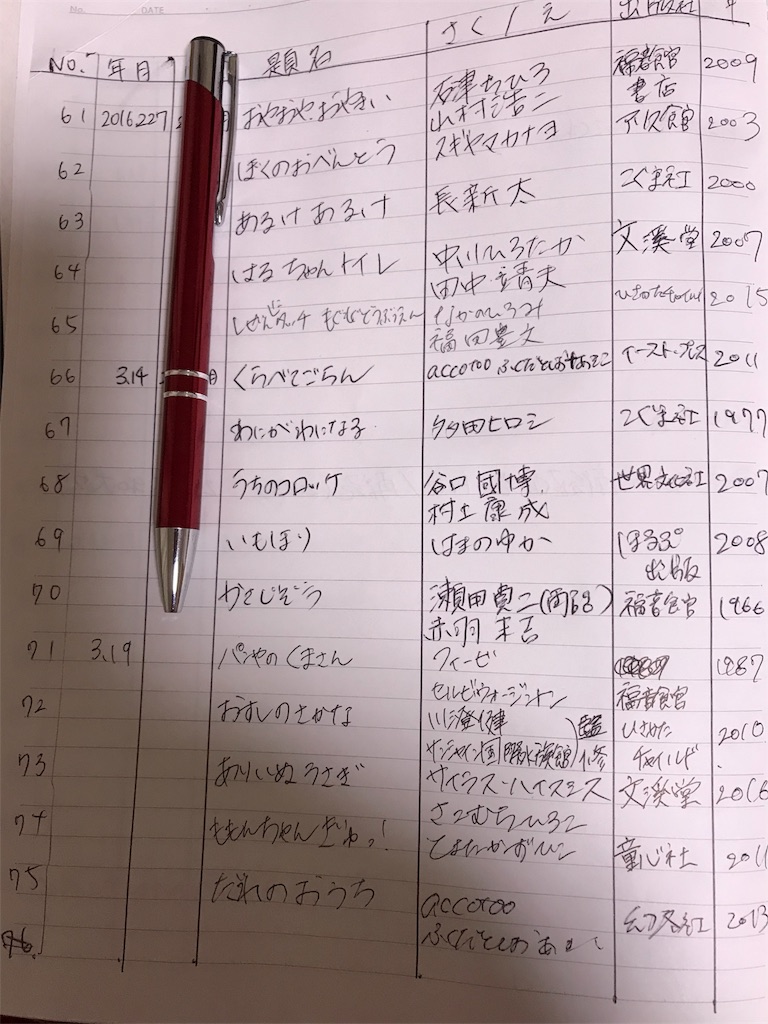 No. DATE
NO. 年月 題名 さく/え 出版社 年
61 2016.2.27 おやおや、おやさい 石津ちひろ 福音館 2009
山村浩二 書店
62 ぼくのおべんとう スギヤマカナヨ アリス館 2003
63 あるけ あるけ 長新太 こぐま社 2000
64 はるちゃんトイレ 中川ひろたか 文溪堂 2007
田中靖夫
65 もぐもぐどうぶつえん なかのひろみ ひさかたチャイルド 2015
福田豊文
66 3.14 月 くらべてごらん accototo ふくだとしお+あきこ イースト・プレス 2011
67 わにがわにになる 多田ヒロシ こぐま社 1977
68 うちのコロッケ 谷口國博 世界文化社 2007
村上康成
69 いもほり はまのゆか ほるぷ 2008
出版
70 かさじぞう 瀬田貞二(再話) 福音館 1966
赤羽末吉
71 3.19 パンやのくまさん フィービ 1987
セルビ・ウォージントン 福音館
72 おすしのさかな 川澄健 ひさかた 2010
サンシャイン国際水族館 監修 チャイルド
73 ありいぬうさぎ サイラス・ハイスミス 文溪堂 2016
74 ももんちゃん ぎゅっ! さこももみ
とよたかずひこ 童心社 2011
75 だれのおうち accototo 幻冬舎 2013
ふくだとしお あきこ
76.